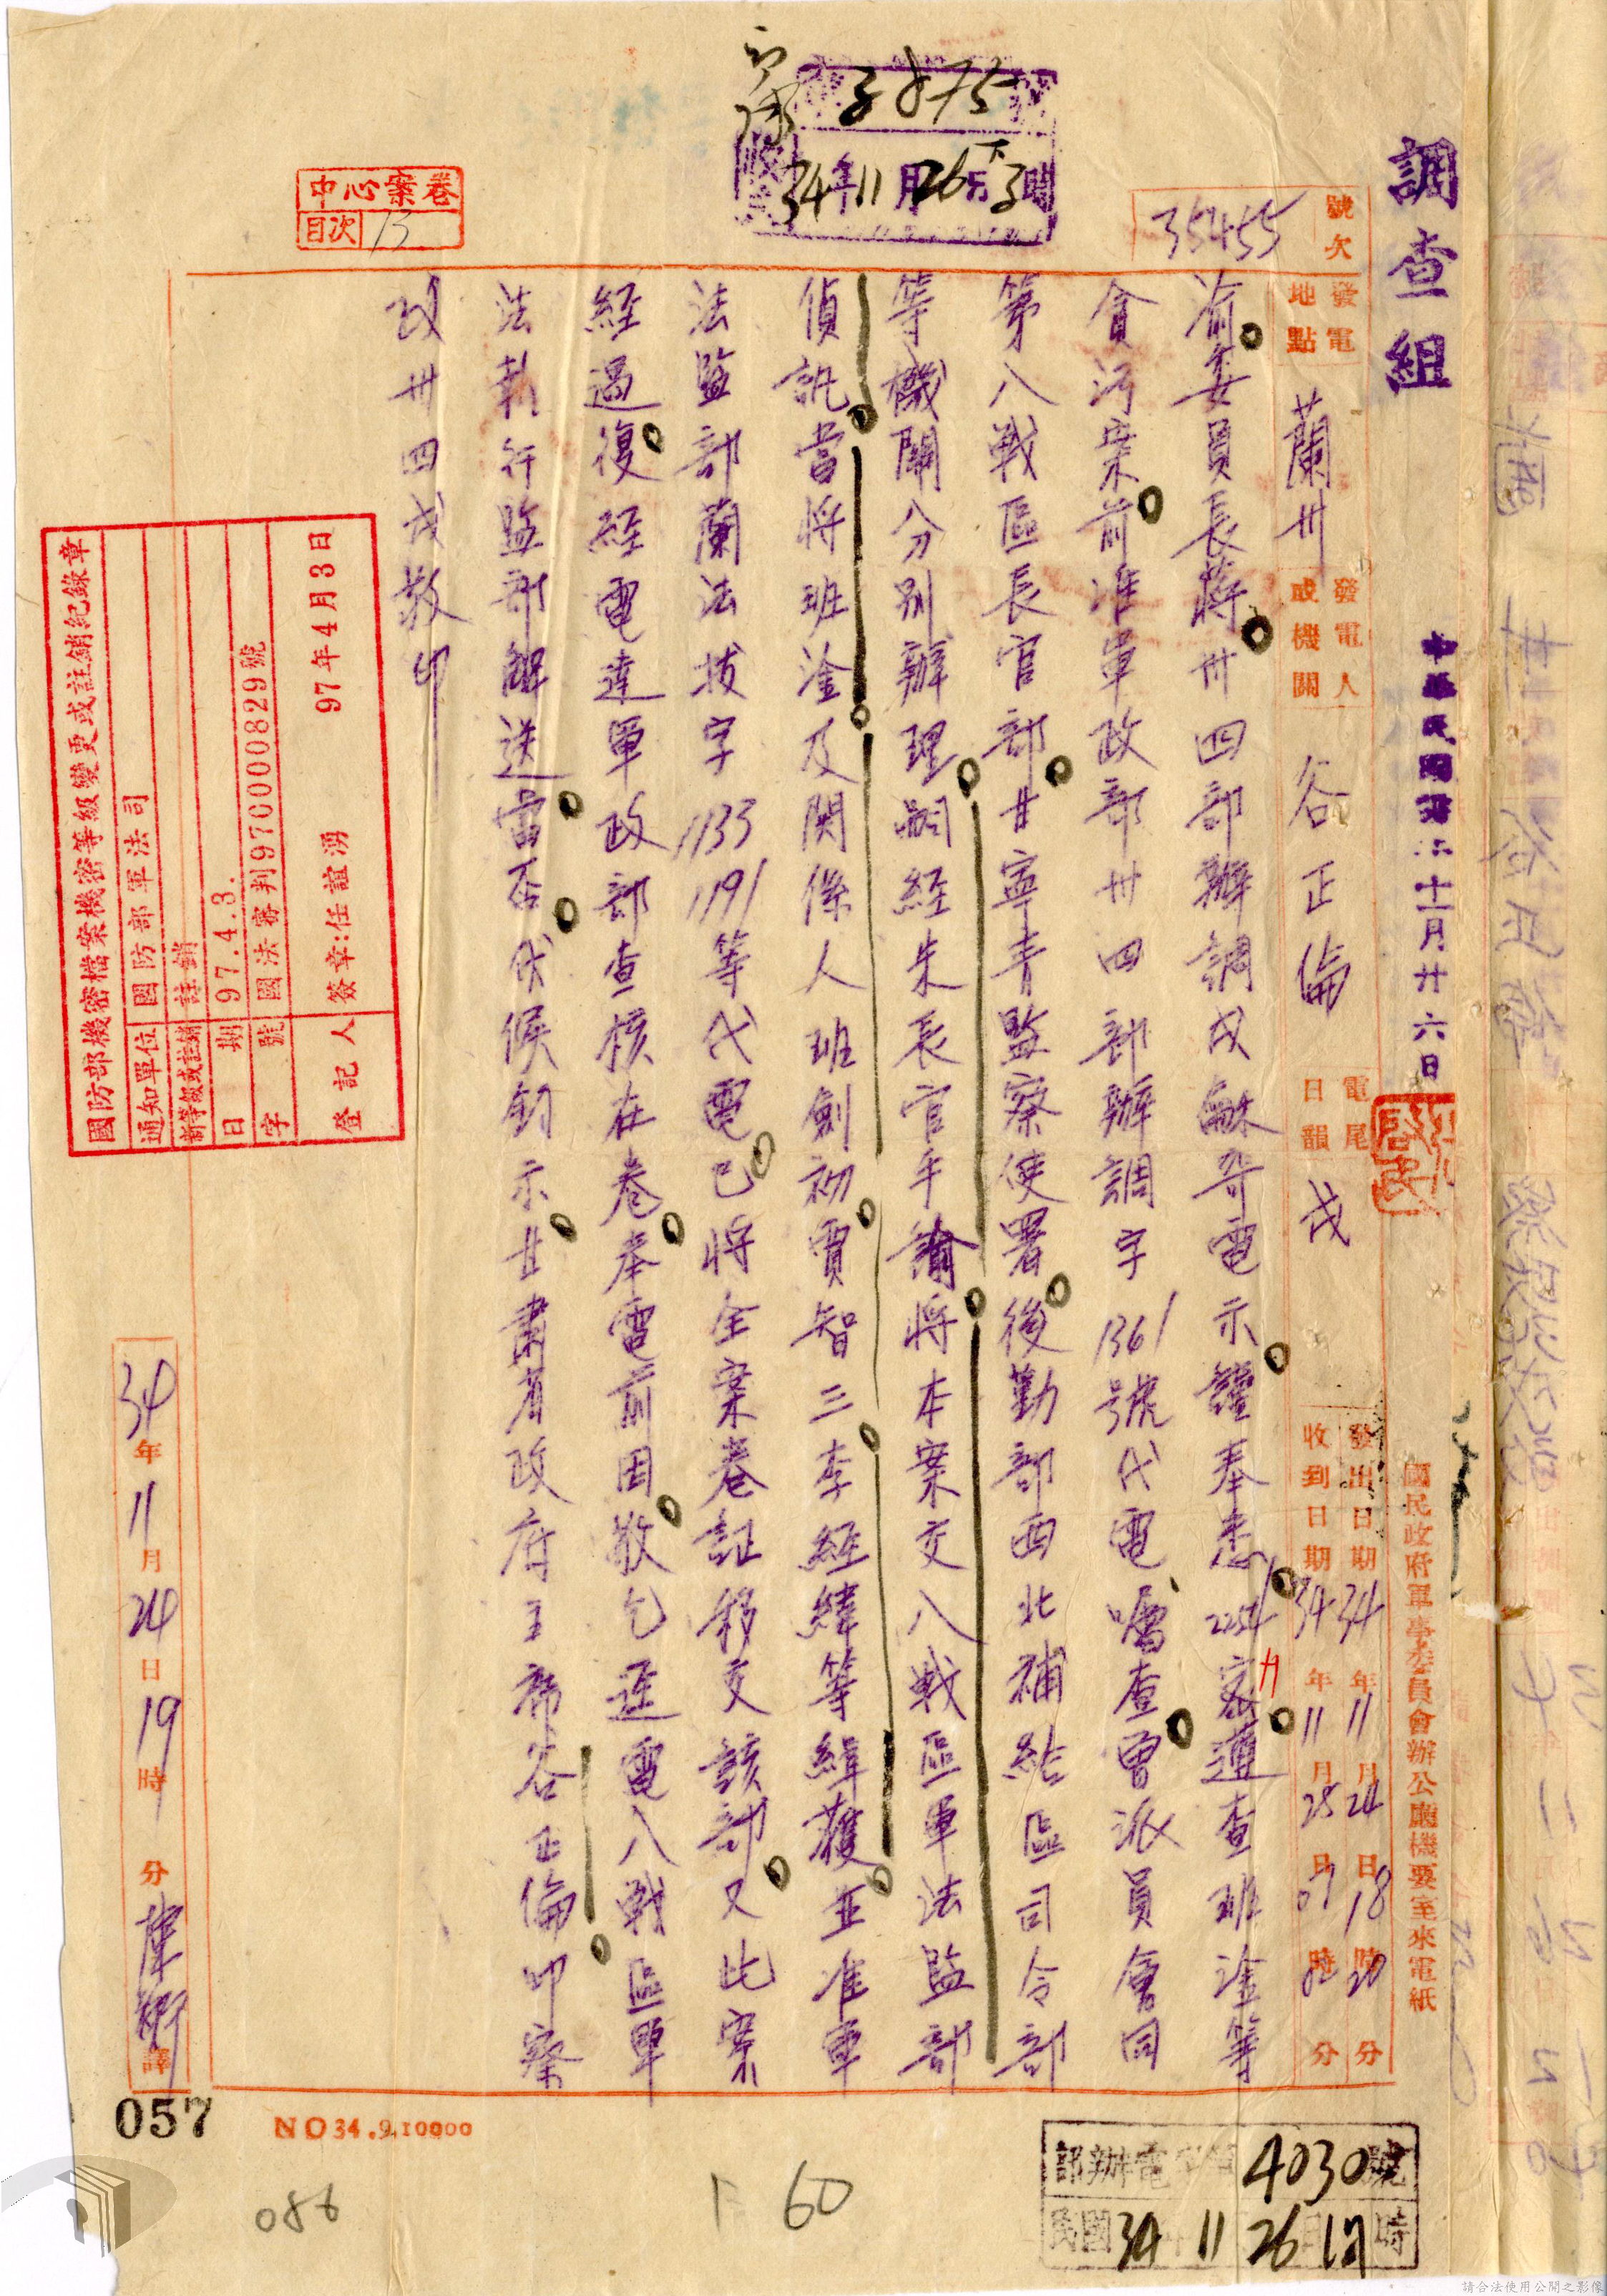 調查組
中華民國卅四年十一月廿六日
國民政府軍事委員會辦公廳機要室來電紙
號次 35455
發電地點 蘭州
發電人或機關 谷正倫
電尾日韻 戌
發出日期 34年11月24日18時20分
收到日期 34年11月25日07時02分
3875
收 34年11月26日下3時
中心案卷
目次 13
渝委員長蔣卅四部辦調戌 電示謹奉悉2254密遵查班淦等
貪污案前准軍政部卅四部辦調字1361號代電囑查曾派員會同
第八戰區長官部甘寧青監察使署後勤部西北補給區司令部
等機關八分別辦理嗣經朱長官手諭將本案交八戰區軍法監部
偵訊當將班淦及関係人班劍初賈智三李經緯等緝獲並准軍
法監部蘭法拔字1133 1191等代電已將全案卷証移交該部又此案
經過復經電達軍政部查核在卷奉電前因敬乞逕電八戰區軍
法執行監部解送當否伏候鈞示甘肅省政府主席谷正倫叩察
政卅四戌敬印
國防部機密檔案機密等級變更或註銷紀錄章
通知單位 國防部軍法司
新等級或註銷 註銷
日期 97.4.3.
字號 國法審判0970000829號
登記人 簽章:任誼湧 97年4月3日
34年11月24日19時 分 譯
057
NO34.9.10000
086
60
部辦電字第4030號
民國34 11 26 17時
請合法使用公開之影像